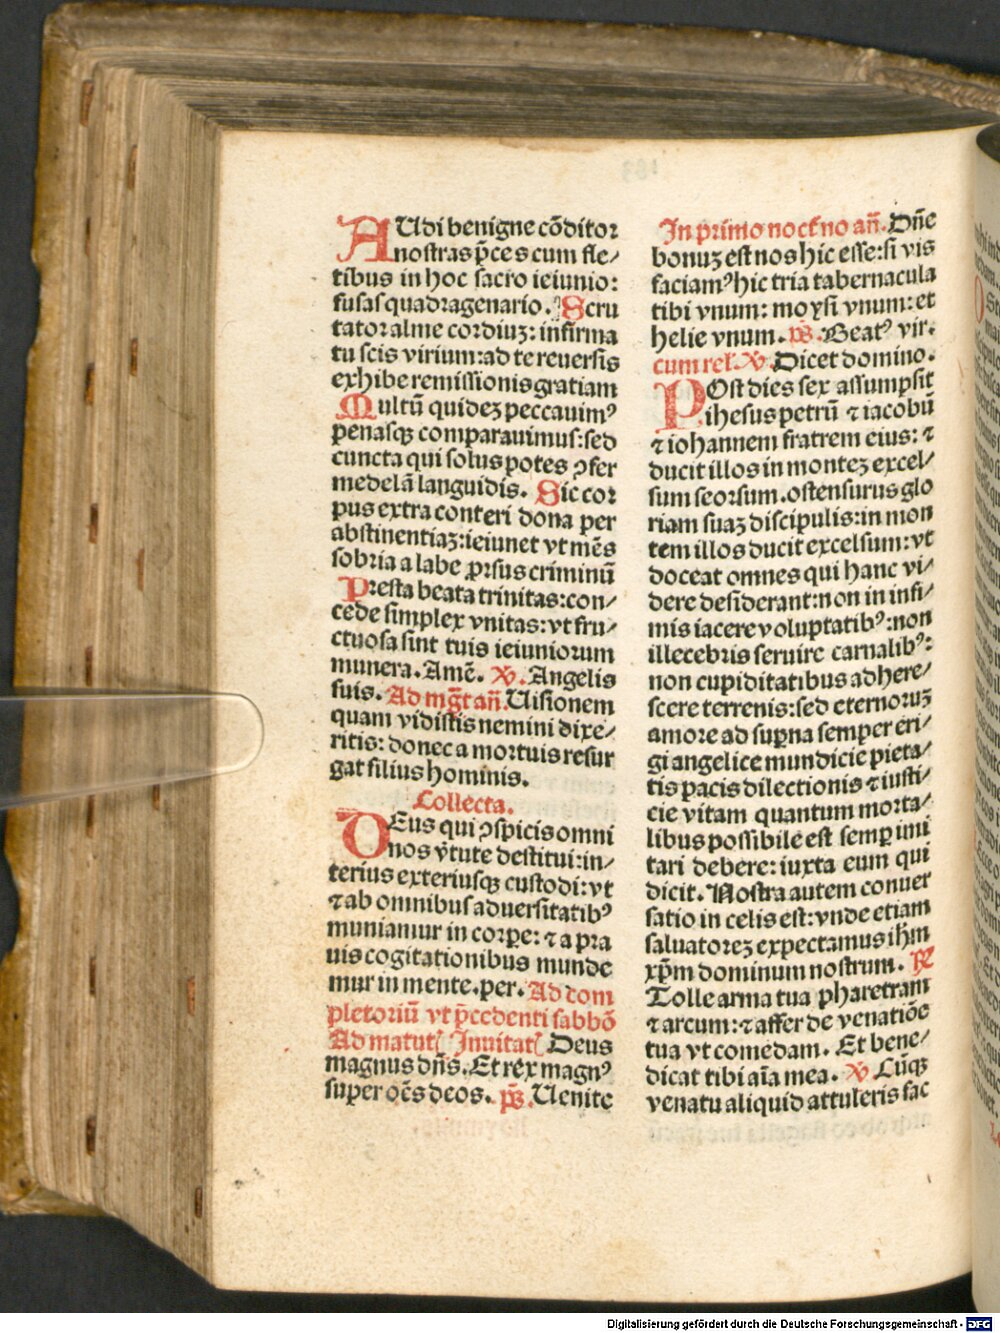 AUdi benigne cōditor
nostras p̄ces cum fle/
tibus in hoc sacro ieiunio:
fusas quadragenario. Scru
tator alme cordiuꝫ: infirma
tu scis virium: ad te reuersis
exhibe remissionis gratiam
Multū quideꝫ peccauimꝰ
penasqꝫ comparauimus: sed
cuncta qui solus potes ꝯfer
medelā languidis. Sic cor
pus extra conteri dona per
abstinentiaꝫ: ieiunet vt mēs
sobria a labe ꝓrsus criminū
Presta beata trinitas: con/
cede simplex vnitas: vt fru/
ctuosa sint tuis ieiuniorum
munera. Amē. ℣. Angelis
suis. Ad mg̅t añ. Uisionem
quam vidistis nemini dixe/
ritis: donec a mortuis resur
gat filius hominis.
Collecta.
DEus qui ꝯspicis omni
nos v̓tute destitui: in/
terius exteriusqꝫ custodi: vt
⁊ ab omnibus aduersitatibꝰ
muniamur in corꝑe: ⁊ a pra
uis cogitationibus munde
mur in mente. per. Ad com
pletoriū vt p̄cedenti sabbō
Ad matutꝭ Inuitatꝭ Deus
magnus dn̄s. Et rex magnꝰ
super oēs deos. ps̄. Uenite
In primo nocťno añ. Dñe
bonuꝫ est nos hic esse: si vis
faciamꝰ hic tria tabernacula
tibi vnum: moysi vnum: et
helie vnum. ps̄. Beatꝰ vir.
cum rel'. ℣. Dicet domino.
POst dies sex assumpsit
ihesus petrū ⁊ iacobū
⁊ iohannem fratrem eius: ⁊
ducit illos in monteꝫ excel/
sum seorsum. ostensurus glo
riam suaꝫ discipulis: in mon
tem illos ducit excelsum: vt
doceat omnes qui hanc vi/
dere desiderant: non in infi/
mis iacere voluptatibꝰ: non
illecebris seruire carnalibꝰ:
non cupiditatibus adhere/
scere terrenis: sed eternoruꝫ
amore ad suꝑna semper eri/
gi angelice mundicie pieta/
tis pacis dilectionis ⁊ iusti/
cie vitam quantum morta/
libus possibile est semꝑ imi
tari debere: iuxta eum qui
dicit. Nostra autem conuer
satio in celis est: vnde etiam
saluatoreꝫ expectamus ihm̄
xp̄m dominum nostrum. ℟
Tolle arma tua pharetram
⁊ arcum: ⁊ affer de venatiōe
tua vt comedam. Et bene/
dicat tibi aīa mea. ℣ Cūqꝫ
venatu aliquid attuleris fac
Digitalisierung gefördert durch die Deutsche Forschungsgemeinschaft - DFG